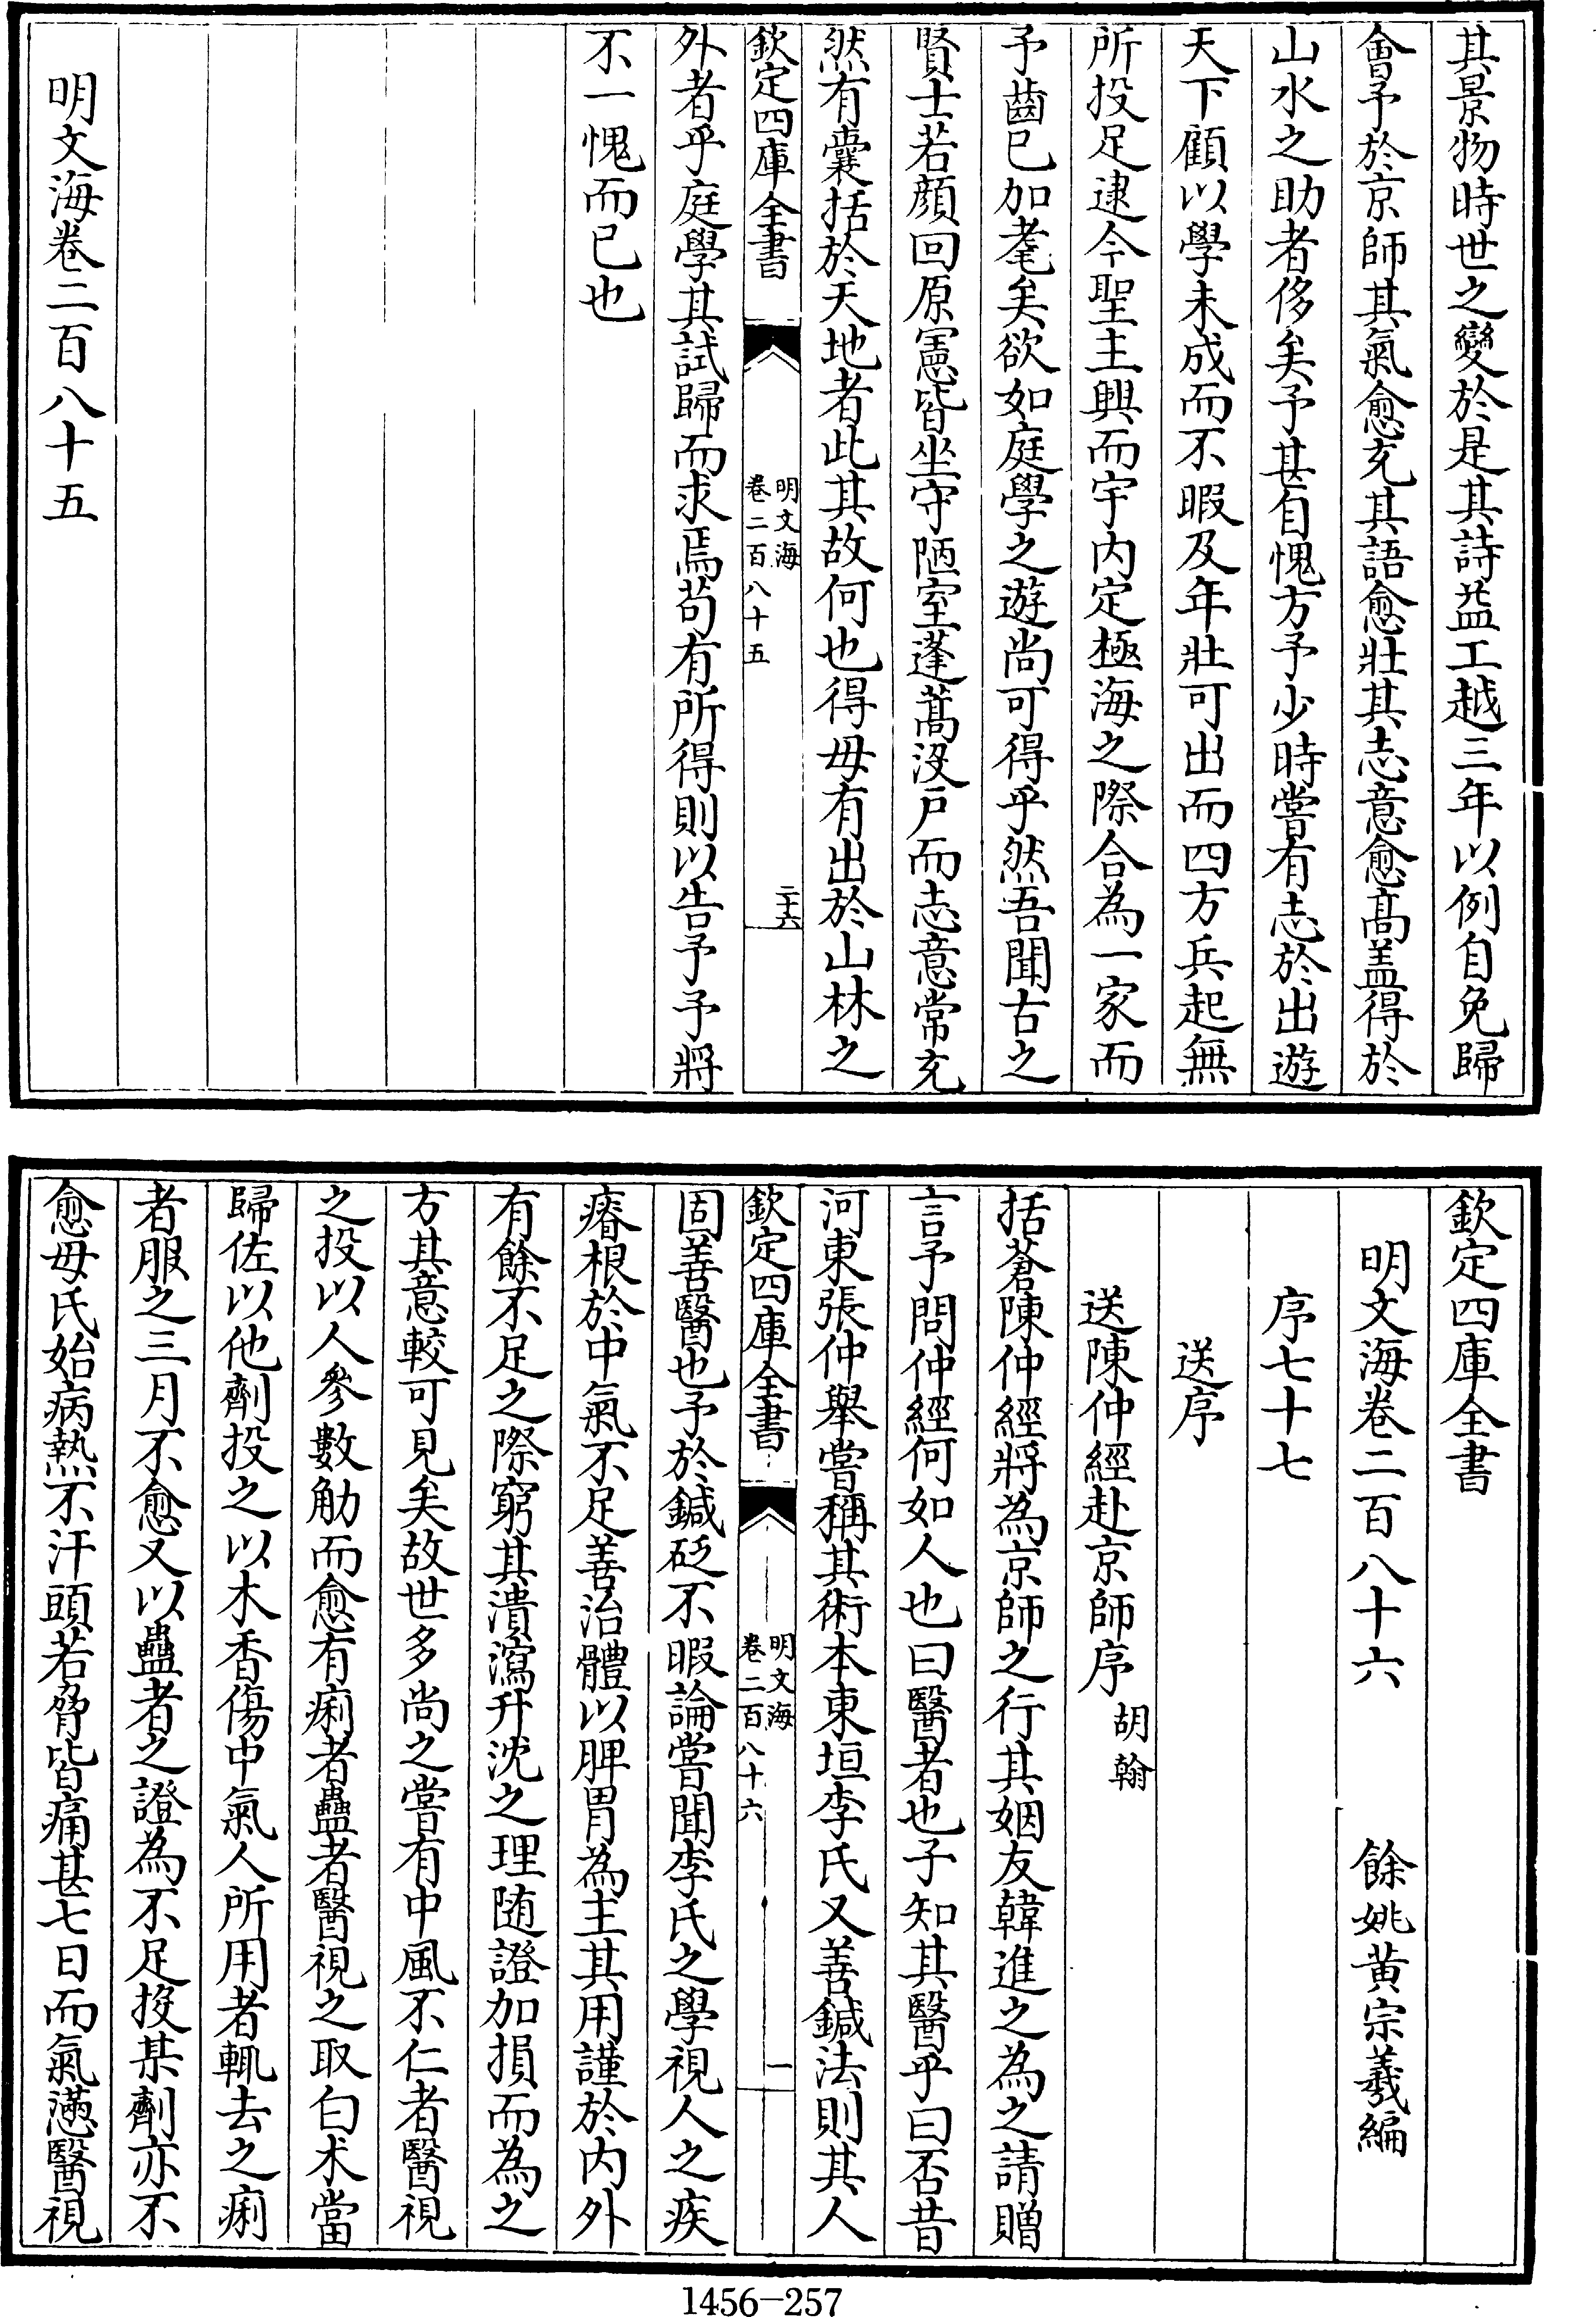 其景物時世之變於是其詩益工越三年以例自免歸
會予於京師其氣愈充其語愈壯其志意愈髙盖得於
山水之助者侈矣予甚自愧方予少時嘗有志於出遊
天下顧以學未成而不暇及年壯可出而四方兵起無
所投足逮今聖主興而宇内定極海之際合為一家而
予齒已加耄矣欲如庭學之遊尚可得乎然吾聞古之
賢士若顔回原憲皆坐守陋室蓬蒿没戸而志意常充
然有囊括於天地者此其故何也得毋有出於山林之
欽定四庫全書
明文海
卷二百八十五
二十六
外者乎庭學其試歸而求焉茍有所得則以告予予將
不一愧而已也
明文海卷二百八十五
欽定四庫全書
明文海卷二百八十六 餘姚黄宗羲編
序七十七
送序
送陳仲經赴京師序 胡翰
括蒼陳仲經將為京師之行其姻友韓進之為之請贈
言予問仲經何如人也曰醫者也子知其醫乎曰否昔
河東張仲舉嘗稱其術本東垣李氏又善鍼法則其人
欽定四庫全書
明文海
卷二百八十六
一
固善醫也予於鍼砭不暇論嘗聞李氏之學視人之疾
瘠根於中氣不足善治體以脾胃為主其用謹於内外
有餘不足之際窮其潰瀉升沈之理随證加損而為之
方其意較可見矣故世多尚之嘗有中風不仁者醫視
之投以人參數觔而愈有痢者蠱者醫視之取白术當
歸佐以他劑投之以木香傷中氣人所用者輒去之痢
者服之三月不愈又以蠱者之證為不足投某劑亦不
愈毋氏始病熱不汗頭若脅皆痛甚七日而氣懣醫視
1456-257